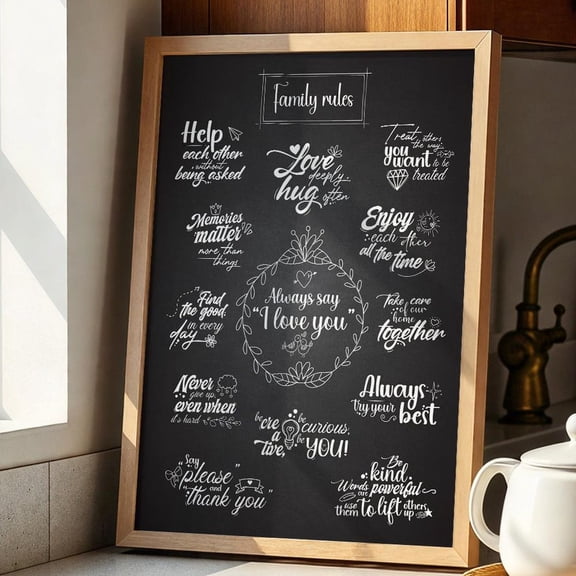 Family rules
Help
each other
without
being asked
Love
deeply
hug often
Treat others
the way
you
want to be
treated
Memories
matter
more than
things
Enjoy
each other
all the time
Find
the good
in every
day
Always say
"I love you"
Take care
of our
home
together
Never
give up,
even when
it's hard
Always
try your best
be cre
a
tive,
be curious,
be YOU!
Say
"please"
and
"thank you"
Be
kind.
Words are powerful
use them to lift others up